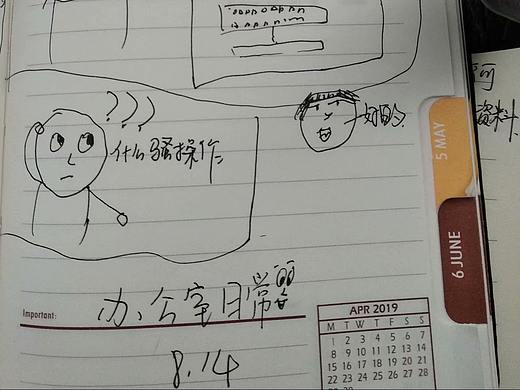 ???
什么骚操作
好的
资料
5 MAY
6 JUNE
办公室日常
Important:
8.14
APR 2019
M T W T F S S
1 2 3 4 5 6 7
8 9 10 11 12 13 14
15 16 17 18 19 20 21
22 23 24 25 26 27 28